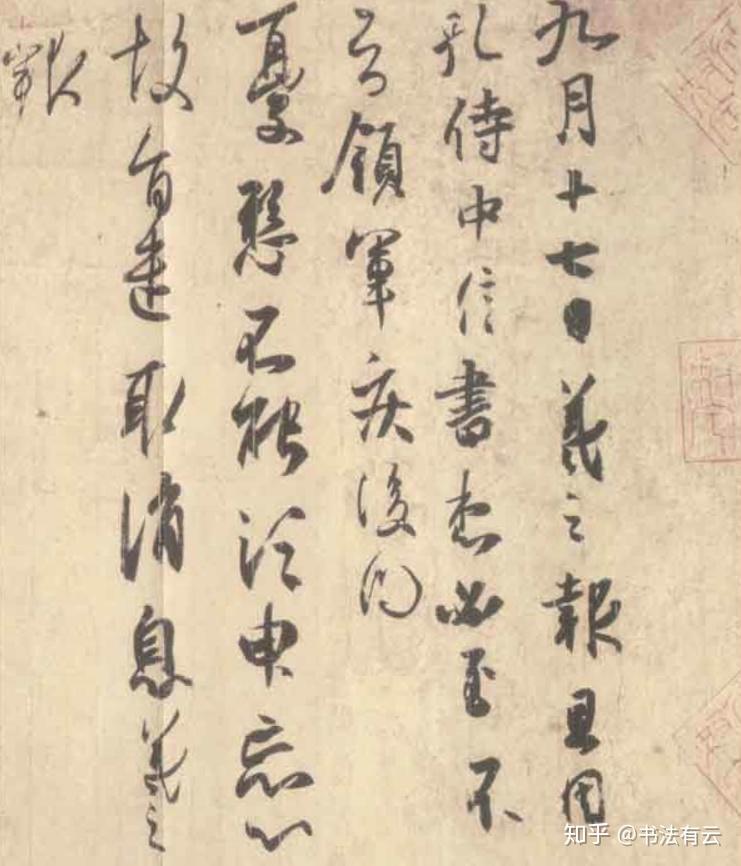 九月十七日羲之報且因
孔侍中信書想必至不
知領軍疾後問
憂懸不能須臾忘心
故旨遣取消息羲之
報
知乎 @书法有云